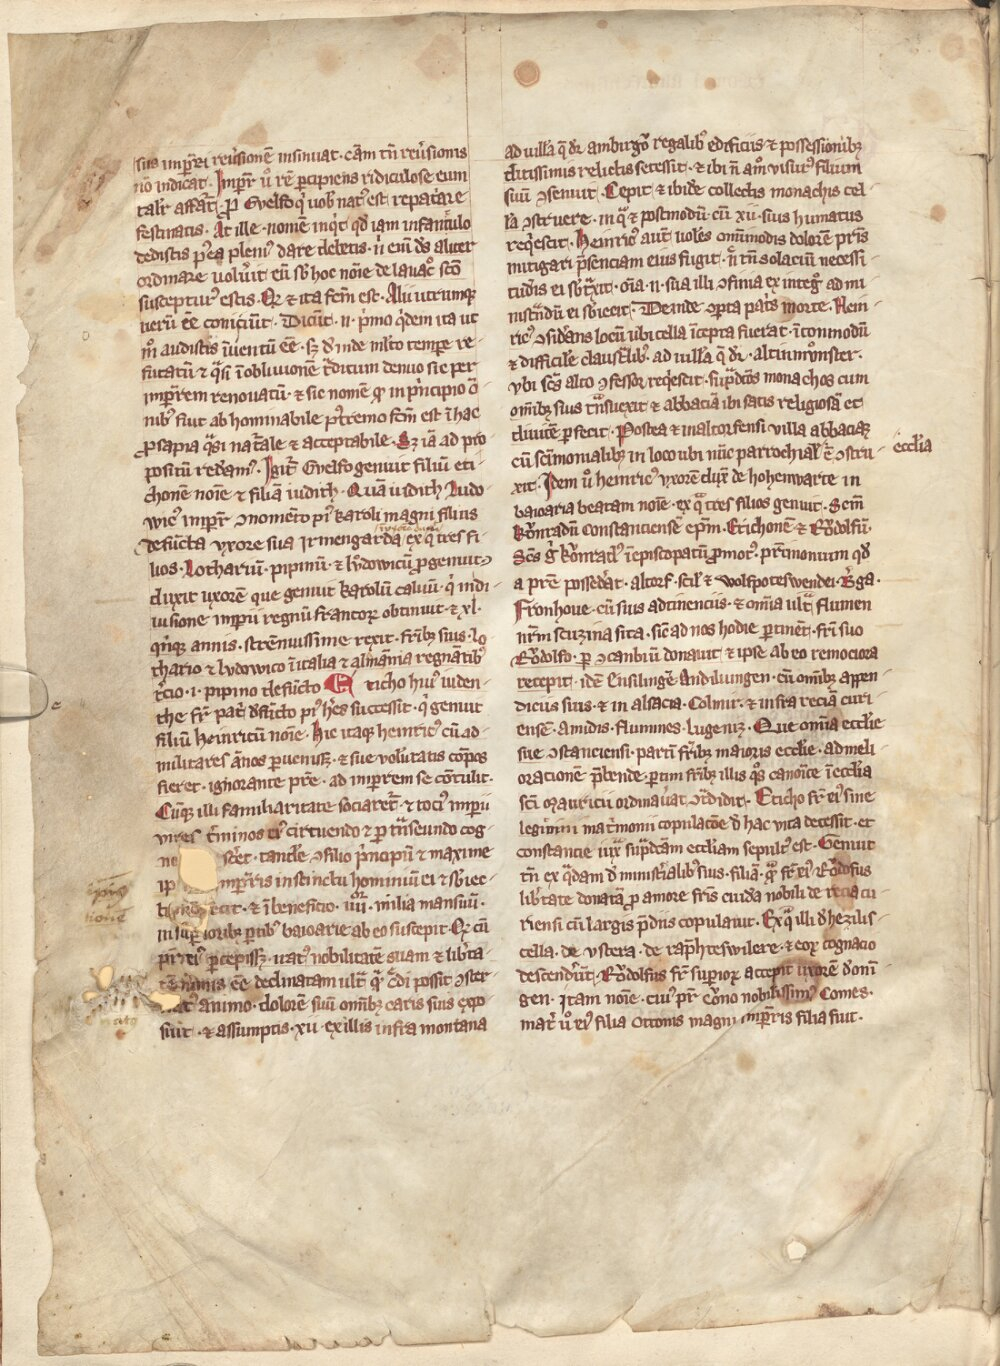 sius impr̄i reu̓sionē insinuat · cām tn̄ reu̓sionis
nō indicat · Impr̄ u̓ rē p̱cipiens ridiculose eum
talit̓ affat̄ · Pro Gwelfo q̓ uob̓ nat᷒ est repatare
festinatis · At ille · nomē inq̓t qd̓ iam infantulo
dedistis p̓ea pleni᷒ dare debetis · n̓ eni̅ d̅s aliter
ordinare uolu̓it eū sb̓ hoc noīe de lauac̓o scō
suscepturi estis · Qd̓ & ita fcm̄ est · Alii utrumq̢
ueru̅ ēe coniciūt · Dicūt · n · p̓mo q̓dem ita ut
m̊ audistis i̅uentū ēe · sȝ d̓inde mlto tempr̄e re-
futatū & q̄si i̅ obliuionē t̄ditum denuo sic per
impr̄rem renouatū · & sic nomē qd̓ in p̓ncipio o̅-
nib᷒ fuit abhominabile p᷒tremo fcm̄ est i̅ hac
p̱sapia q̄si nat̓ale & acceptabile · Sȝ iā ad pro-
positū redam᷒ · Igit̓ Gwelfo genuit filiū eti-
chonē noīe & filiā iudith · Quā iudith Ludo-
wic᷒ impr̄r cognom̄to pi᷒ karoli magni filius
defūcta uxore sua Irmengarda ex q̄ tres fi-
lios · Lothariū · pipinū · & lūdowicū p̱genuit
duxit uxorē que genuit karolū caluū · q̓ indi-
uisione impii regnū francorꝝ obtinuit · & xl ·
q̓nq̢ annis · strēnuissime rexit · fr̄ib᷒ suis · Lo-
thario & ludowico i̅ italia & alm̄ania regnātib᷒
t̓cio · i · pipino defūcto Eticho hui᷒ iuden-
the fr̄ pat̓ defūcto pi᷒ h̓es successit · q̓ genuit
filiū heinricū noīe · hic itaq̢ heinric᷒ cū ad
militares annos p̱uenisȝ · & sue volūtatis cōpos
fieret · ignorante pr̄e · ad imprem se cōtulit ·
Cūq̢ illi familiaritate sociaret̓ · & toci᷒ imp̱ii
vires t̓minos ei᷒ circuendo & p̱t̄nseundo cog-
ne sc̓et · tandē cō filio p̓ncipiū & maxime
ip mperris instinctu hominiū ei & sb̓iec-
ecit · & i̅ beneficio · iiii · milia mansuū ·
in sup̱iorib᷒ p̱tib᷒ baioarie ab eo suscepit · Qd̓ cū
pr̄ ei᷒ p̱cepissȝ · rat᷒ nobilitatē suam & lib̓ta-
tē nimis ēe declinatam ult̄ q̄ c̓di possit cōster-
nat᷒ animo · dolorē suū omīb᷒ caris suis expo-
suit · & assumptis · xii · ex illis infra montana
ad uillā q̄ dr̄ ambirgo regalib᷒ edificiis & possessionib᷒
ditissimis relictis secessit · & ibi n̄ am᷒ visur᷒ filium
suū cōsenuit · Cepit & ibidē collectis monachis cel-
lā cōstruere · in q̄ & postmodū cū xii · suis humatus
req̓escit · Heinric᷒ aut̄ uolēs om̄imodis dolorē pr̄is
mitigari p̄senciam eius fugit · n̄ tn̄ solaciū necessi-
tudīs ei sb̓t̄xit · oīa · n · sua illi cōfinia ex integ̓ ad mi-
nistrādū ei sb̓iecit · Deinde cōp̱ta pat̓is morte · Hein-
ric᷒ cōsid̓ans locū ubi cella i̅cepta fuerat · i̅comodū
& difficile claustralib᷒ · ad uillā q̄ dr̄ · altinmūnster ·
Vbi scs̄ alto cōfessor req̓escit · sup̄dc̄os monachos cum
omīb᷒ suis t̄nsuexit & abbaciā ibi satis religiosā et
diuitē p̱fecit · Postea & in altorfensi villa abbaciā
cū sc̄imonialib᷒ in loco ubi nūc parrochial᷒ ē cōstru- eccl̓ia
xit · Idem u̓ heinric᷒ vxorē duxit de hohenwarte in
baioaria beatam noīe · ex q̄ tres filios genuit · Scm̄
kōnradū constanciensē epm̄ · Etichonē · & Rūdolfū ·
Scs̄ g̓ kōnrad᷒ i̅ episcopatū p̱mot᷒ · pr̄imonium qd̓
a pr̄e possedat̓ · altorf · scil᷒ & wolfpoteswendei · b̓ga ·
Fronhoue · cū suis adtinenciis · & om̄ia ult̄ flumen
nr̄m scuzina sita · sic ad nos hodie p̱tinēt · fr̄i suo
Rūdolfo · p̱ cōcanbiū donauit & ipse ab eo remociora
recepit · idē Ensilingē Andiluingen · cū omīb᷒ appen-
diciis suis · & in alsacia · Colmir · & infra reciā curi-
ensē · amidis · flumines · Lugeniz · Que om̄ia eccl̓ie
sue cōstanciensi · partī fr̄ib᷒ maioris eccl̓ie · ad meli-
oracionē p̄bende · p̱tim fr̄ib᷒ illis q̊s canoīce i̅ eccl̓ia
sc̄i mauricii ordinau̓at t̓didit · Eticho fr̄ ei᷒ sine
legitimi mat̓monii copulacōe d̓ hac vita decessit · et
constancie iux̄ sup̄dc̄am eccl̓iam sepult᷒ est · Genuit
tn̄ ex q̄dam d̓ ministialib᷒ suis · filiā · q̄ fr̄ ei᷒ Rūdolfus
lib̓tate donatā p̱ amore fr̄is cuida nobili de recia cu-
riensi cū largis p̄diis copulauit · Ex q̄ illi d̓ hezilis-
cella · de vstera · de raphteswilere · & eorꝝ cognacio
descender̄ūt · Rūdolfus fr̄ sup̱ior᷒ accepit uxorē d̓ oni-
gen · Itam noīe · cui᷒ pr̄ Cōno nobilissim᷒ Comes ·
mat̓ u̓ ei᷒ filia Ottonis magni imperris filia fuit ·